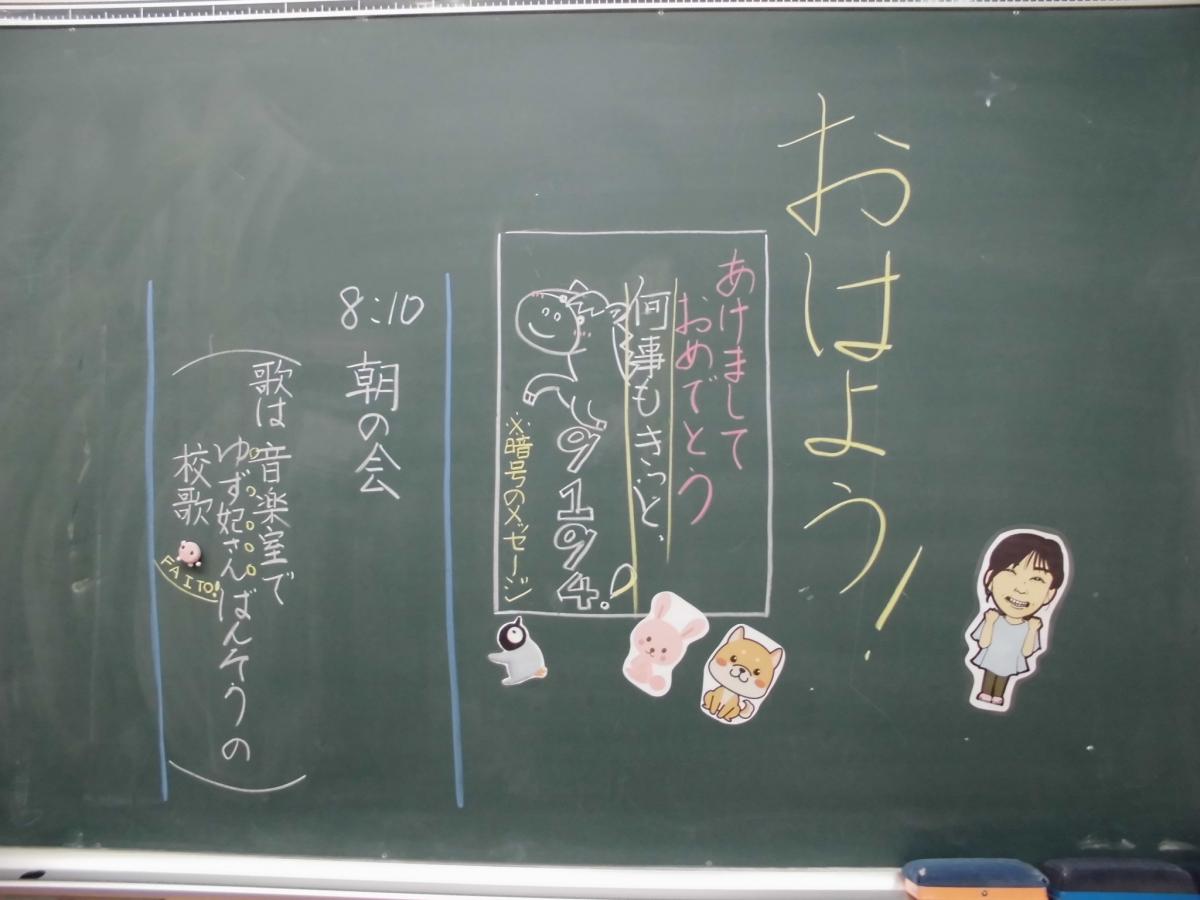 おはよう!
あけまして
おめでとう
何事もきっと、
9194!
※暗号のメッセージ
8:10
朝の会
歌は音楽室で
ゆず妃さんばんそうの
校歌
FAITO!